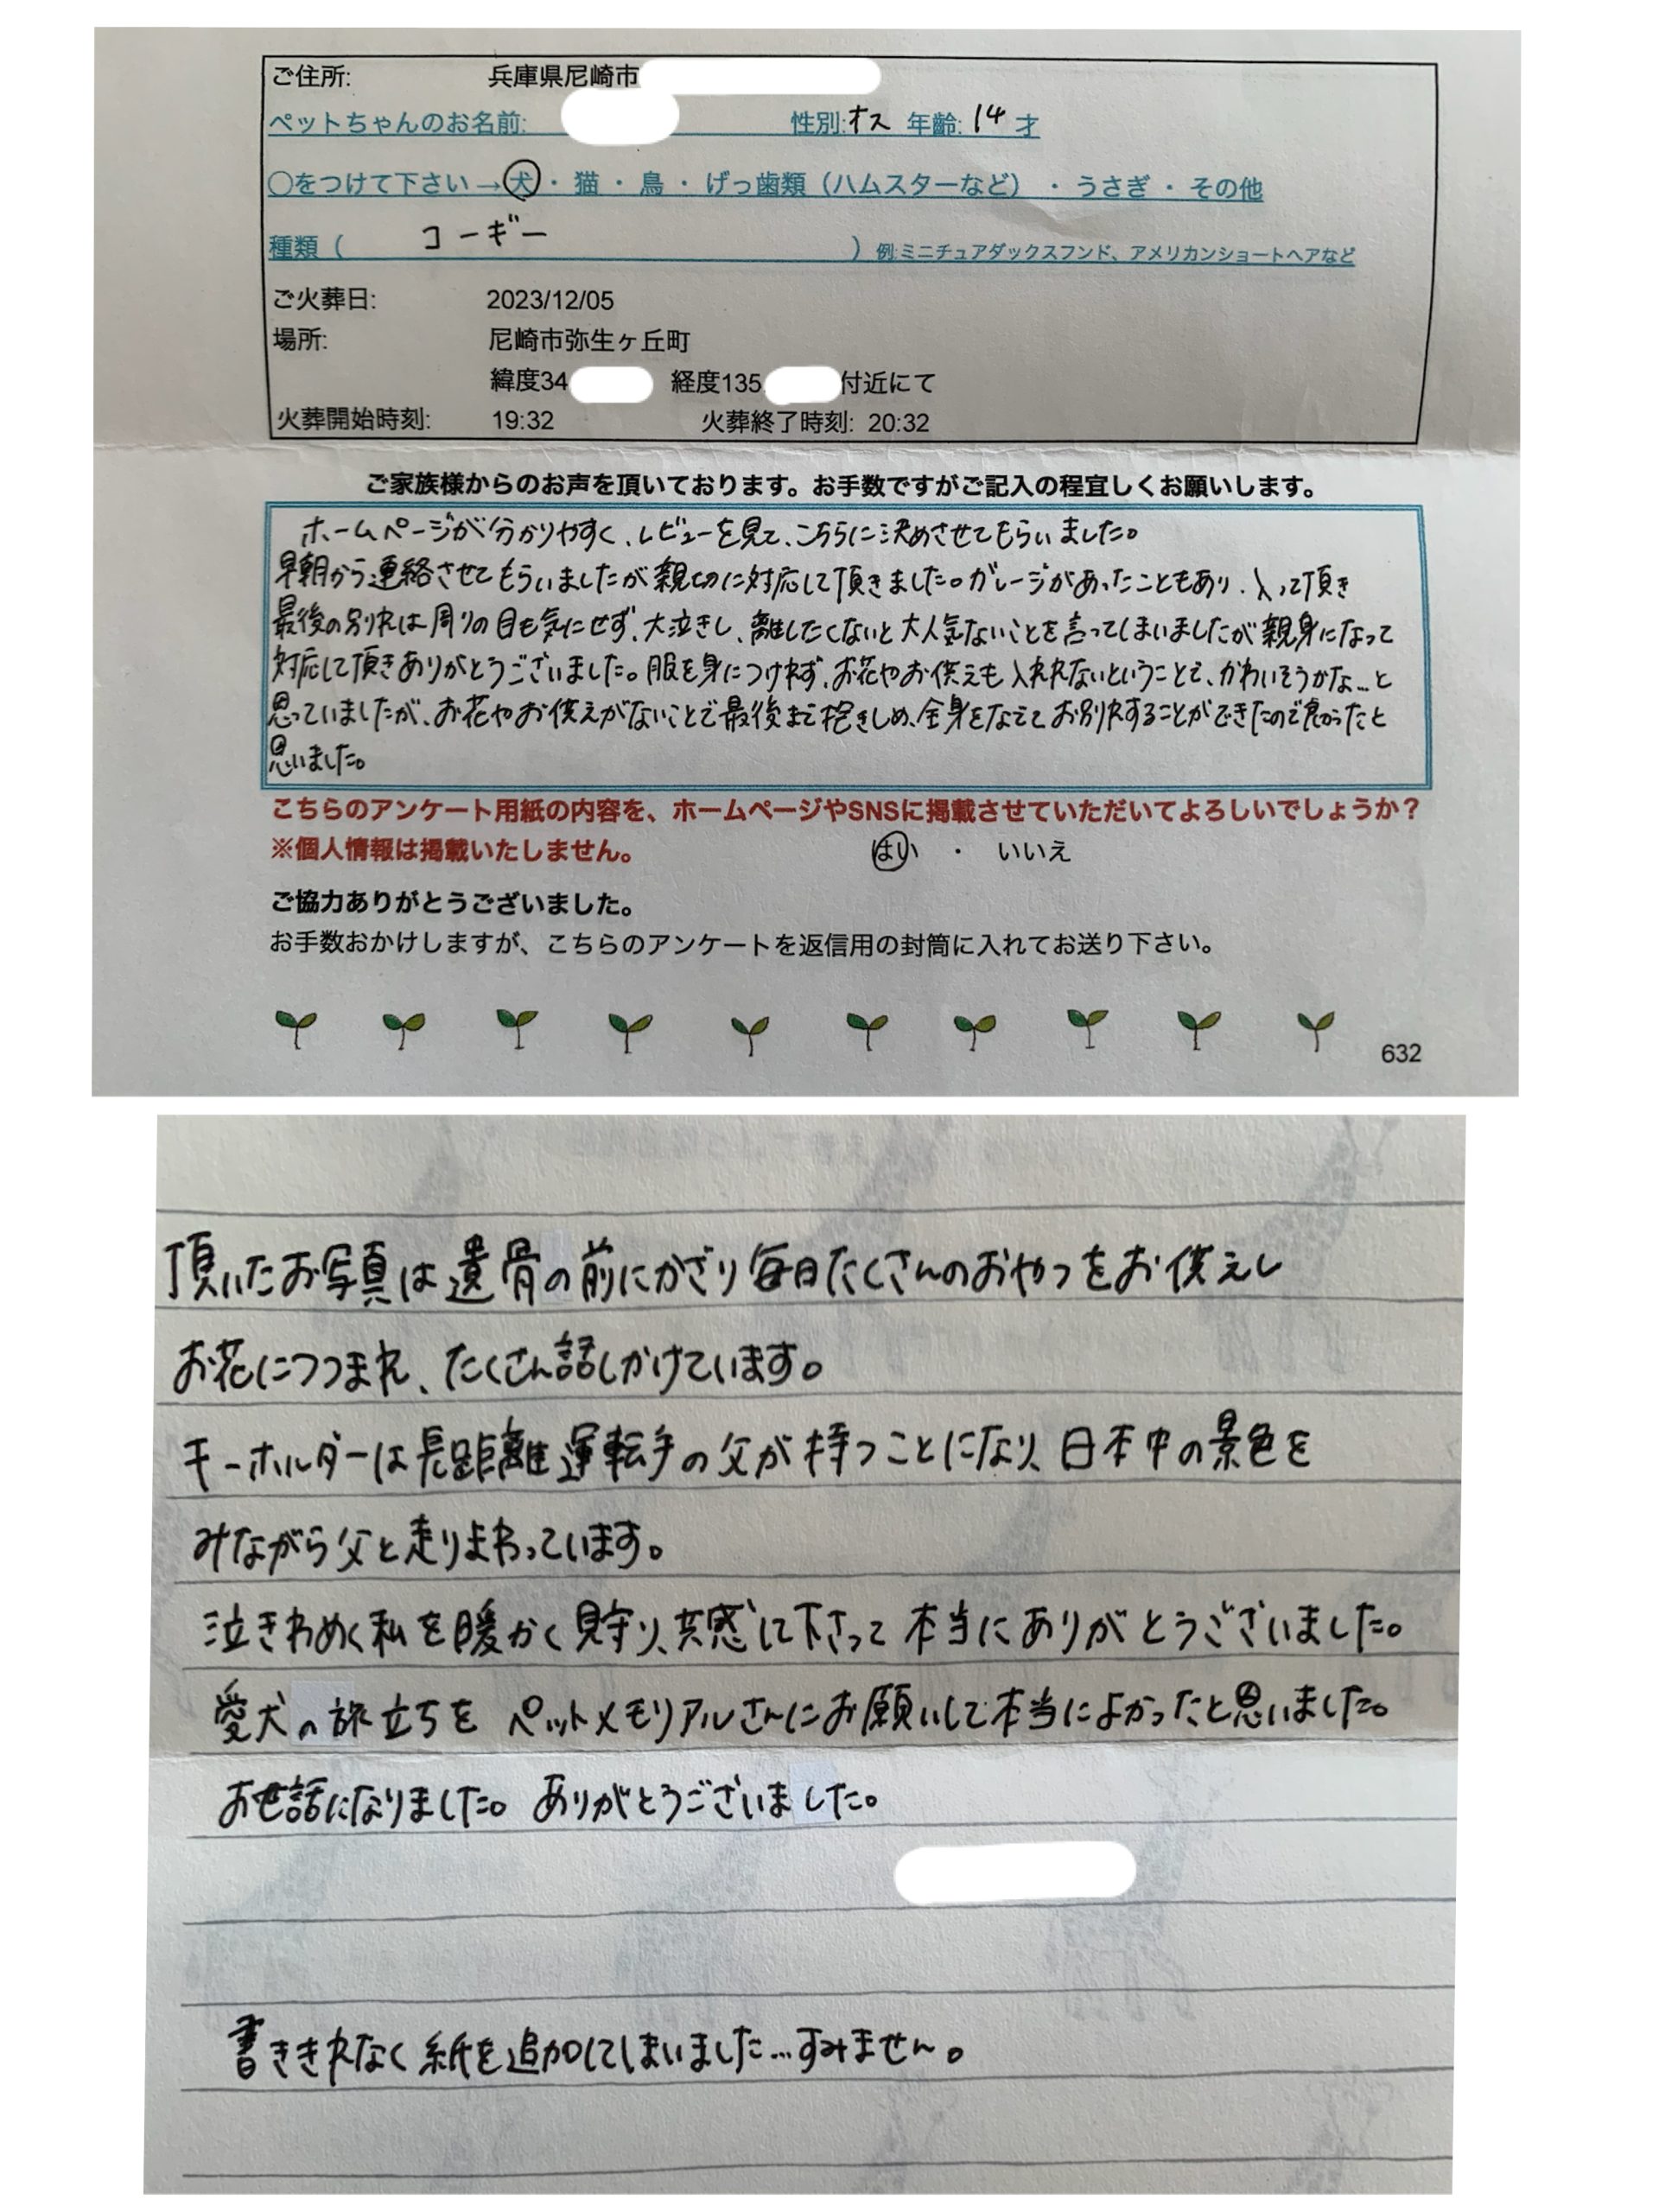 ご住所: 兵庫県尼崎市
ペットちゃんのお名前: 性別:オス 年齢:14才
○をつけて下さい→犬・猫・鳥・げっ歯類（ハムスターなど）・うさぎ・その他
種類（ コーギー ）例:ミニチュアダックスフンド、アメリカンショートヘアなど
ご火葬日: 2023/12/05
場所: 尼崎市弥生ヶ丘町
緯度34 経度135 付近にて
火葬開始時刻: 19:32 火葬終了時刻: 20:32
ご家族様からのお声を頂いております。お手数ですがご記入の程宜しくお願いします。
ホームページが分かりやすく、レビューを見て、こちらに決めさせてもらいました。
早朝から連絡させてもらいましたが親切に対応して頂きました。ガレージがあったこともあり、入って頂き
最後の別れは周りの目も気にせず、大泣きし、離したくないと大人気ないことを言ってしまいましたが親身になって
対応して頂きありがとうございました。服を身につけれず、お花やお供えも入れれないということで、かわいそうかな…と
思っていましたが、お花やお供えがないことで最後まで抱きしめ、全身をなでてお別れすることができたので良かったと
思いました。
こちらのアンケート用紙の内容を、ホームページやSNSに掲載させていただいてよろしいでしょうか？
※個人情報は掲載いたしません。 はい ・ いいえ
ご協力ありがとうございました。
お手数おかけしますが、こちらのアンケートを返信用の封筒に入れてお送り下さい。
632
頂いたお写真は遺骨の前にかざり毎日たくさんのおやつをお供えし
お花につつまれ、たくさん話しかけています。
キーホルダーは長距離運転手の父が持つことになり、日本中の景色を
みながら父と走りまわっています。
泣きわめく私を暖かく見守り、共感して下さって本当にありがとうございました。
愛犬の旅立ちをペットメモリアルさんにお願いして本当によかったと思いました。
お世話になりました。ありがとうございました。
書ききれなく紙を追加してしまいました…すみません。